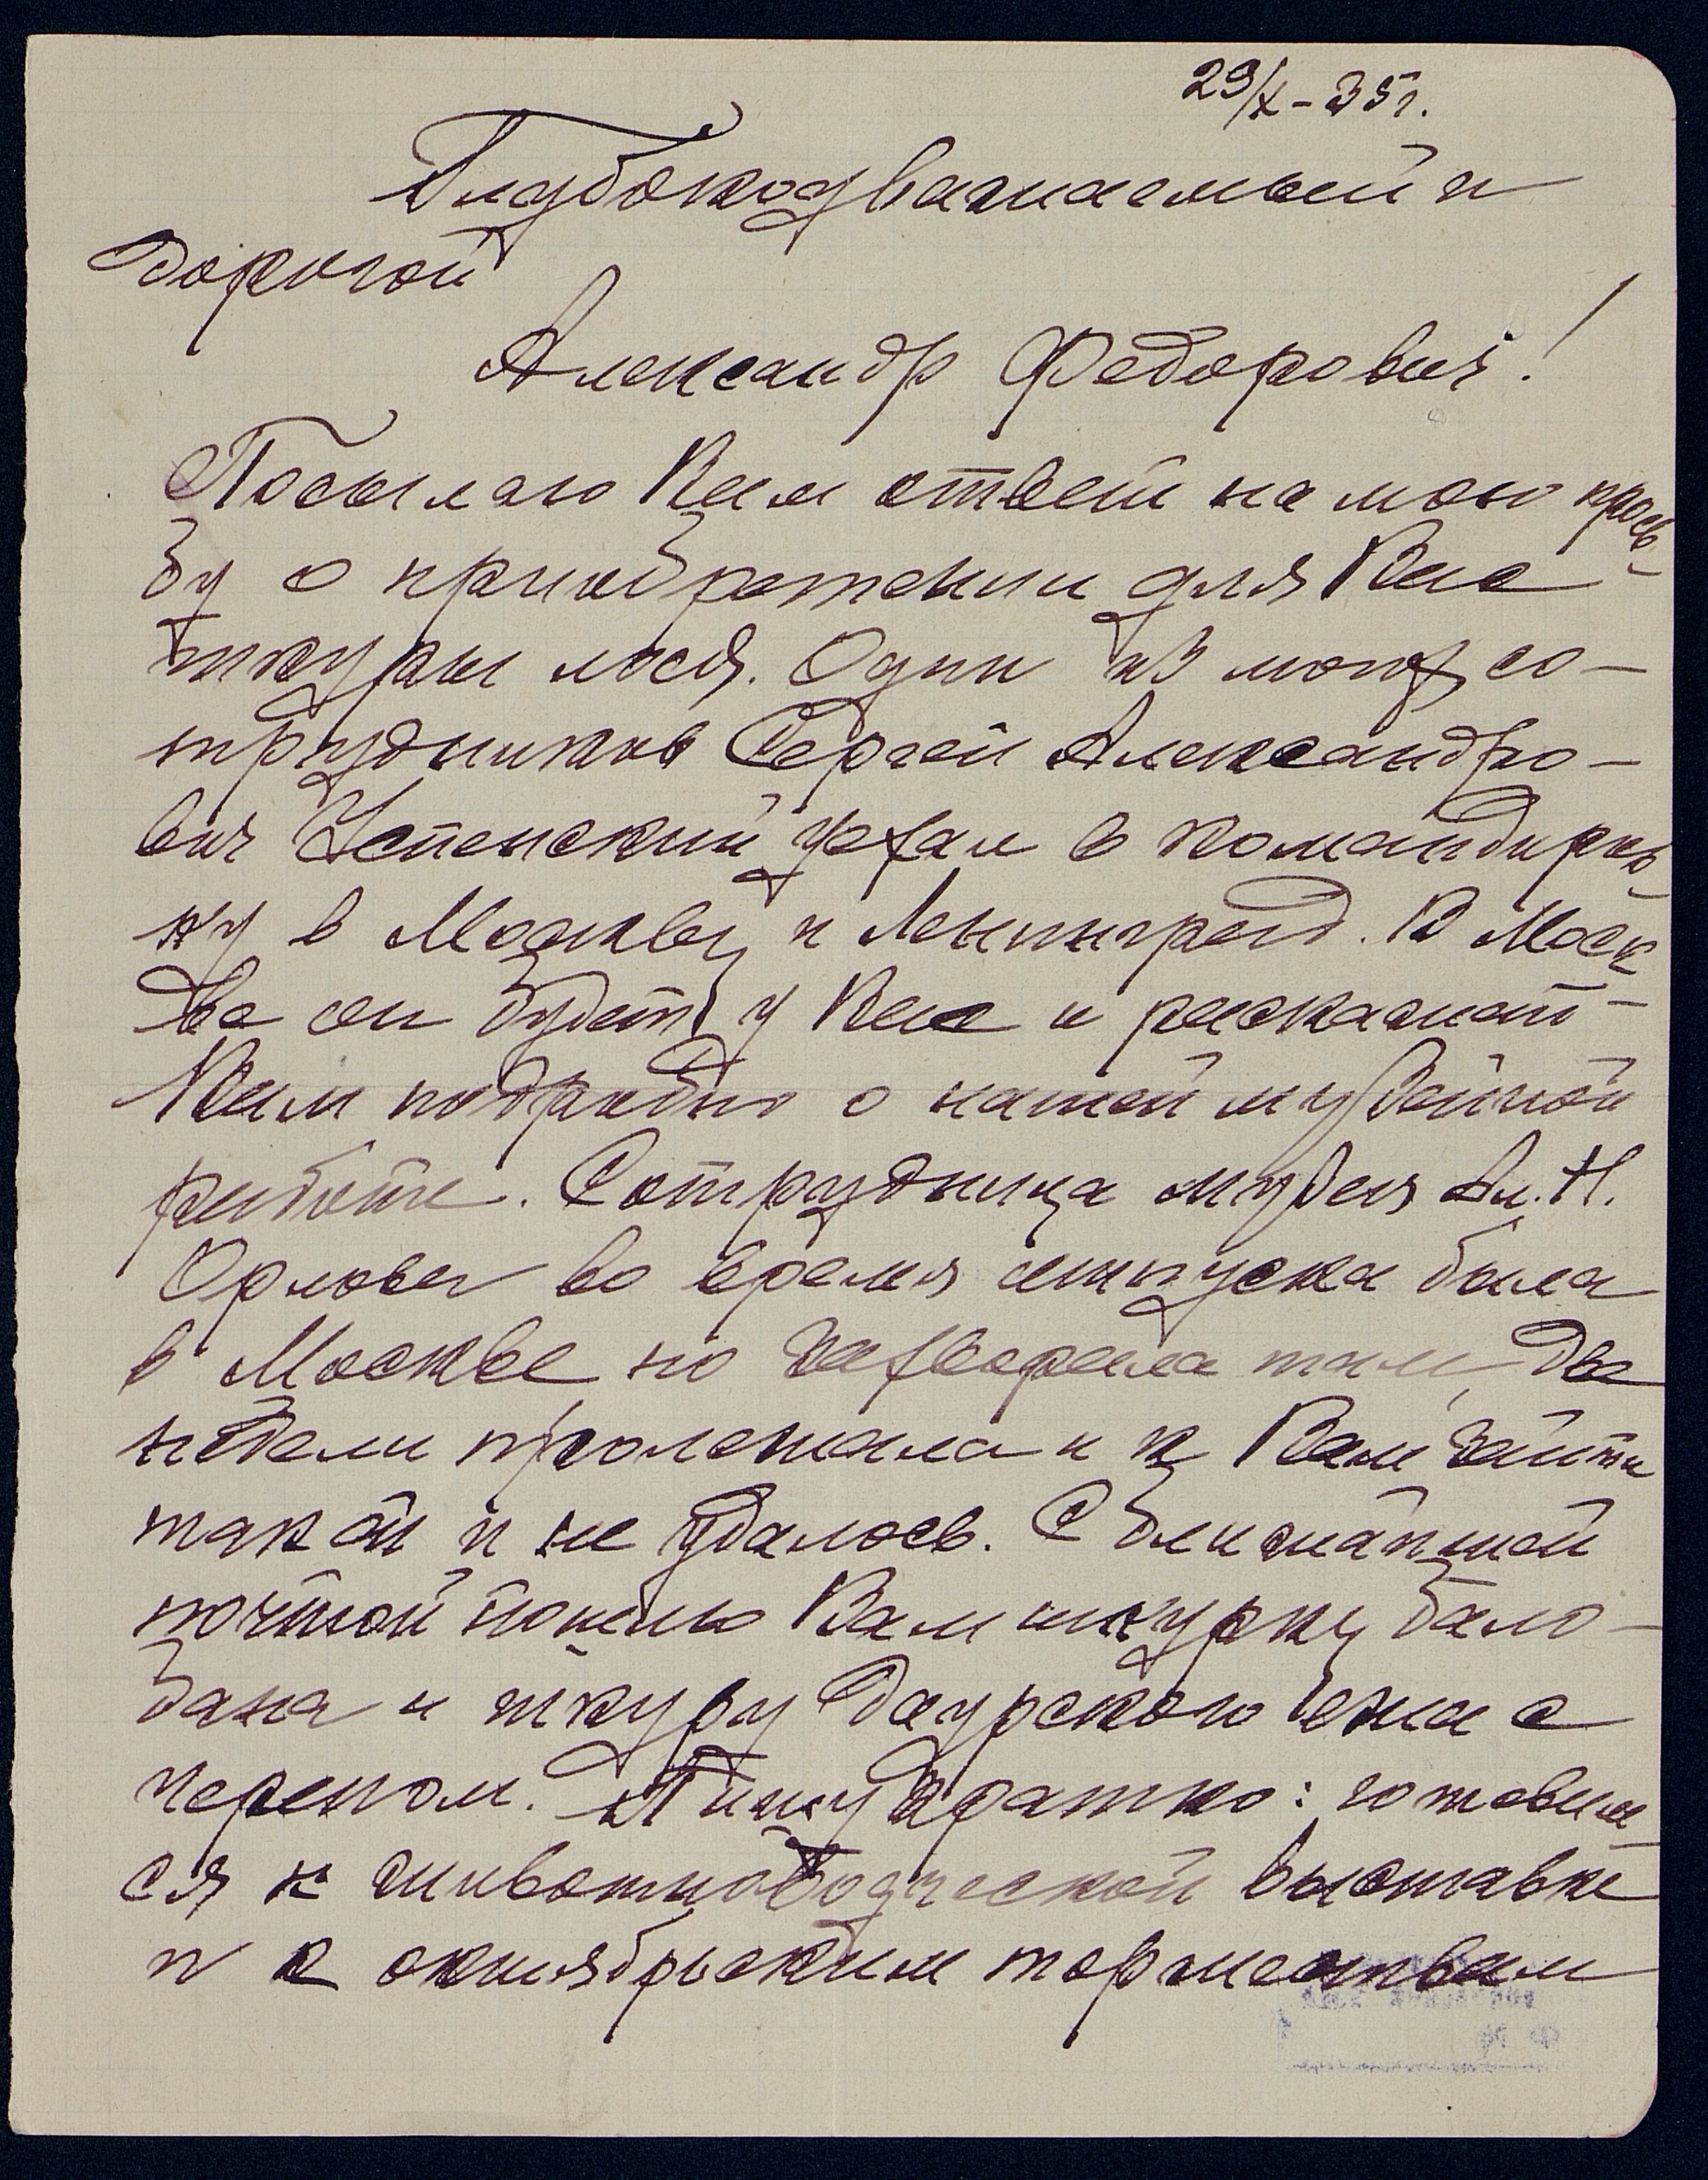 29/X–35г.
Глубокоуважаемый и
дорогой
Александр Федорович!
Посылаю Вам ответ на мою прось-
бу о приобретении для Вас
шкуры лося. Один из моих со-
трудников Сергей Александро-
вич Успенский уехал в командиров-
ку в Москву и Ленинград. В Моск-
ве он будет у Вас и расскажет
Вам подробно о нашей музейной
работе. Сотрудница музея Ал. Н.
Орлова во время отпуска была
в Москве но захворала там, две
недели пролежала и к Вам зайти
так ей и не удалось. С ближайшей
почтой пошлю Вам шкурку бало-
бана и шкуру даурского ежа с
черепом. Пишу кратко: готовим-
ся к животноводческой выставке
и к октябрьским торжествам